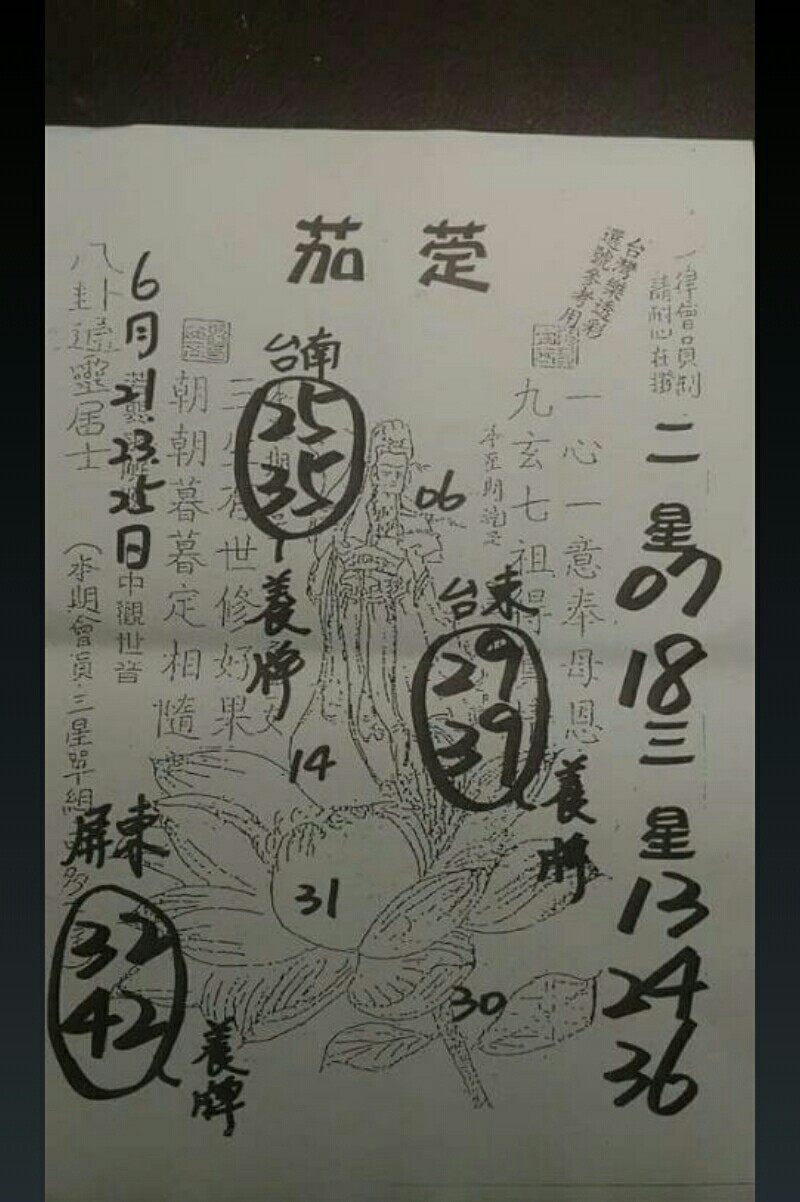 茄萣
台灣樂透彩
選號參考用
一律會員制
請耐心在攤
二星
07
18
三星
13
24
36
一心一意奉母恩
九玄七祖得
台南
25
35
養牌
06
台東
29
39
養牌
朝朝暮暮定相隨
世修好果
6月21.23.25日
中觀世音
八卦
居士
(本期會員三星單組
14
31
30
屏東
32
42
養牌